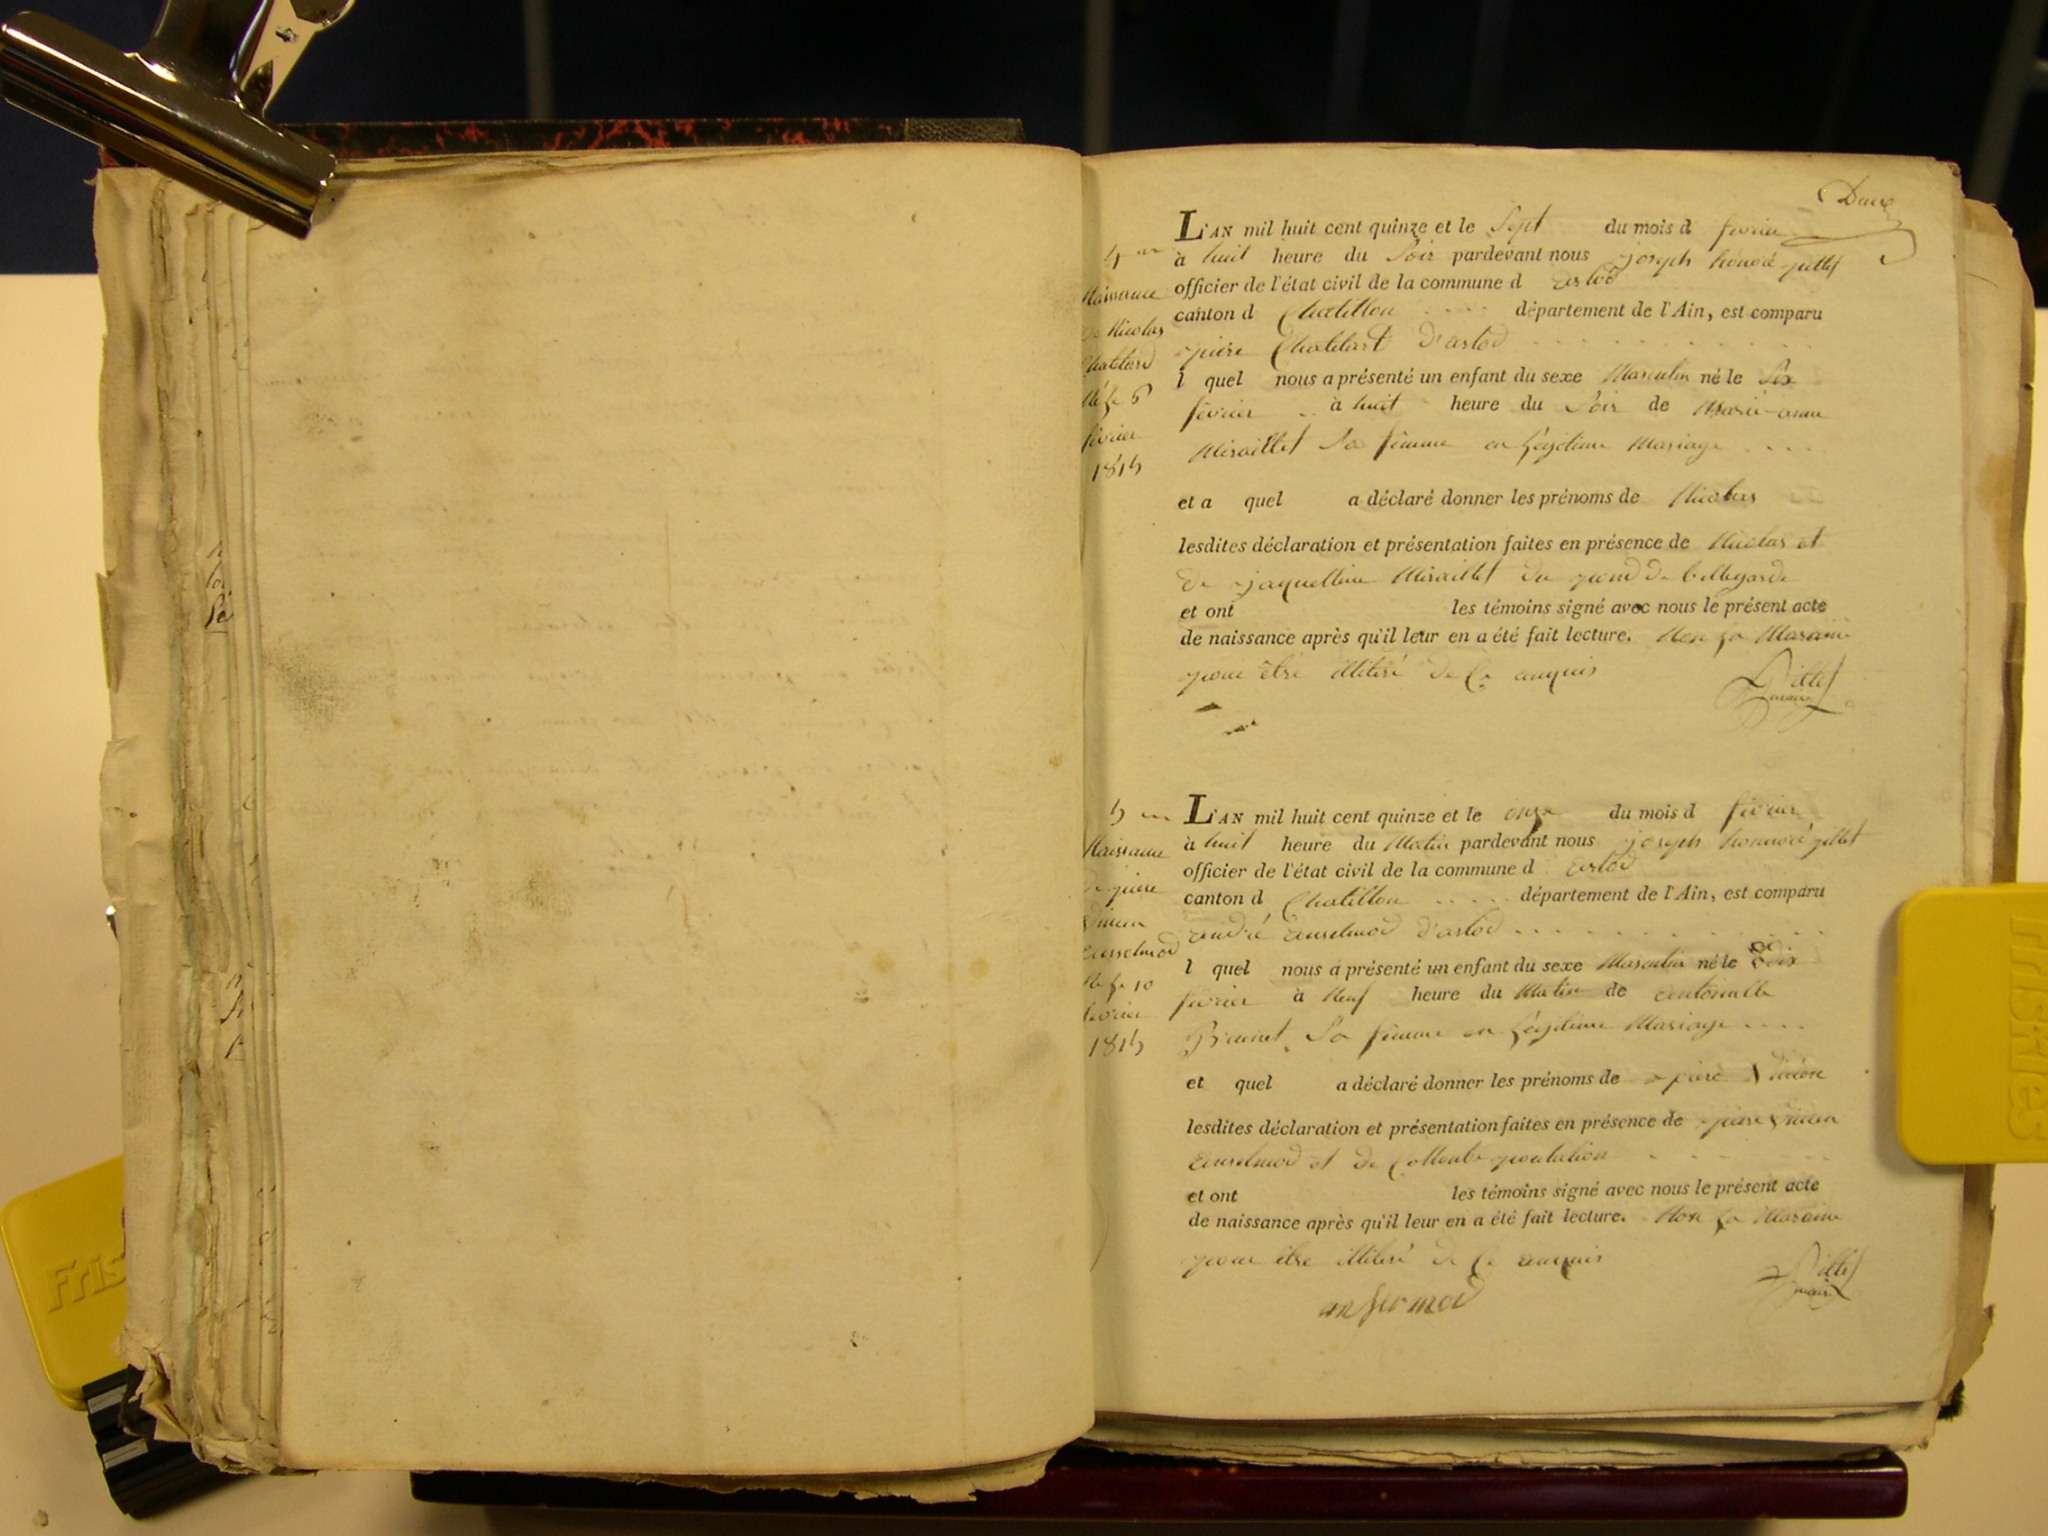 L'AN mil huit cent quinze et le Sept du mois d fevrier
à huit heure du Soir pardevant nous joseph honoré gillet
officier de l'état civil de la commune d arlod
canton d Chatillon département de l'Ain, est comparu
piere Chatelard d'arlod
l quel nous a présenté un enfant du sexe Masculin né le Six
fevrier à huit heure du Soir de Marie anne
Miraillet Sa femme en Légitime Mariage
et a quel a déclaré donner les prénoms de Nicolas
lesdites déclaration et présentation faites en présence de Nicolas et
de jaquelline Miraillet du pond de bellegarde
et ont les témoins signé avec nous le présent acte
de naissance après qu'il leur en a été fait lecture. Non la Maraine
pour être illiteré de Ce enquis
Gillet
maire
Naissance
de Nicolas
Né le 6
fevrier
1815
L'AN mil huit cent quinze et le onze du mois d fevrier
à huit heure du Matin pardevant nous joseph honnoré gillet
officier de l'état civil de la commune d arlod
canton d Chatillon département de l'Ain, est comparu
andré anselmod d'arlod
l quel nous a présenté un enfant du sexe Masculin né le dix
fevrier à Neuf heure du Matin de antoinette
Brunet Sa femme en Légitime Mariage
et quel a déclaré donner les prénoms de piere
lesdites déclaration et présentation faites en présence de piere
anselmod et de
et ont les témoins signé avec nous le présent acte
de naissance après qu'il leur en a été fait lecture. Non la Maraine
pour être illiteré de Ce enquis
ansermod
Gillet
maire
5
Naissance
de piere
anselmod
Né le 10
fevrier
1815
Fris
FRISKIES